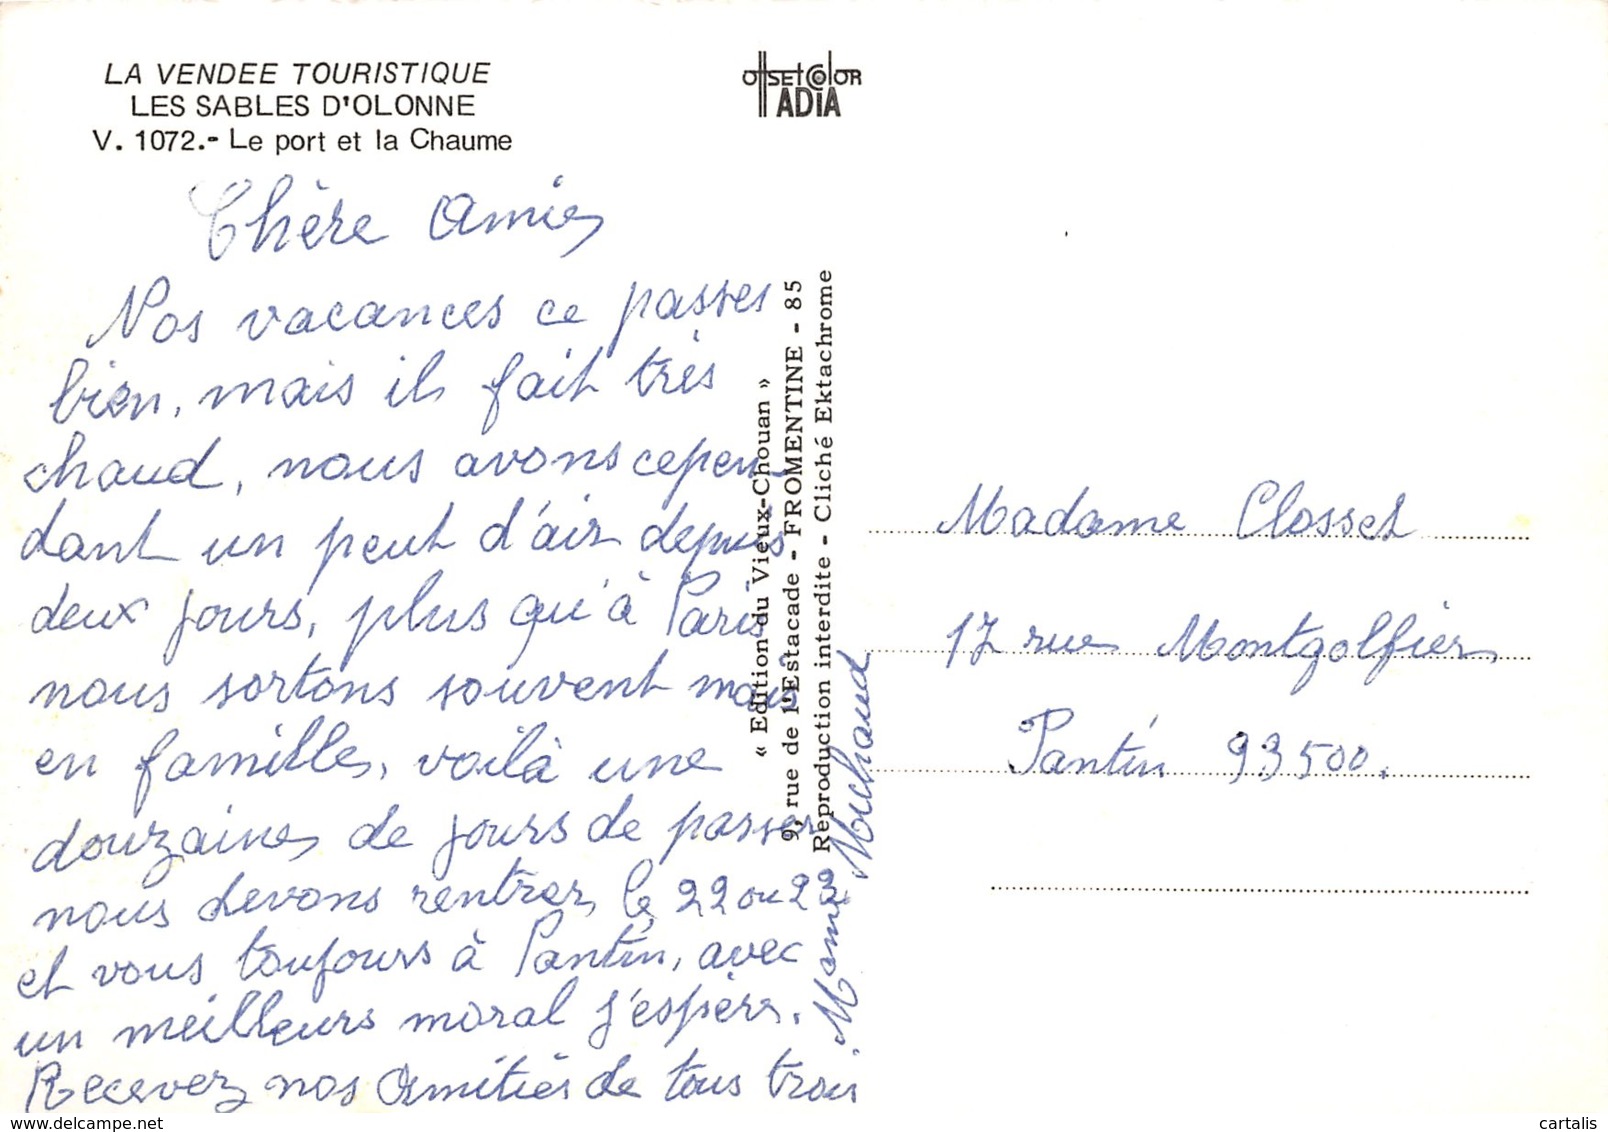 LA VENDEE TOURISTIQUE
LES SABLES D'OLONNE
V. 1072.- Le port et la Chaume
OffSEt COlOR
ADIA
Chère Amie
Nos vacances ce passes
bien, mais il fait très
chaud, nous avons cepen
dant un peut d'air depuis
deux jours, plus qu'à Paris
nous sortons souvent mais
en famille, voilà une
douzaine de jours de passer
nous devons rentrer le 22 ou 23
et vous toujours à Pantin, avec
un meilleurs moral j'espère.
Recevez nos Amitiés de tous trois
Mame Michaud
« Edition du Vieux-Chouan »
9, rue de l'Estacade - FROMENTINE - 85
Reproduction interdite - Cliché Ektachrome
Madame Closset
17 rue Montgolfier
Pantin 93500.
cartalis